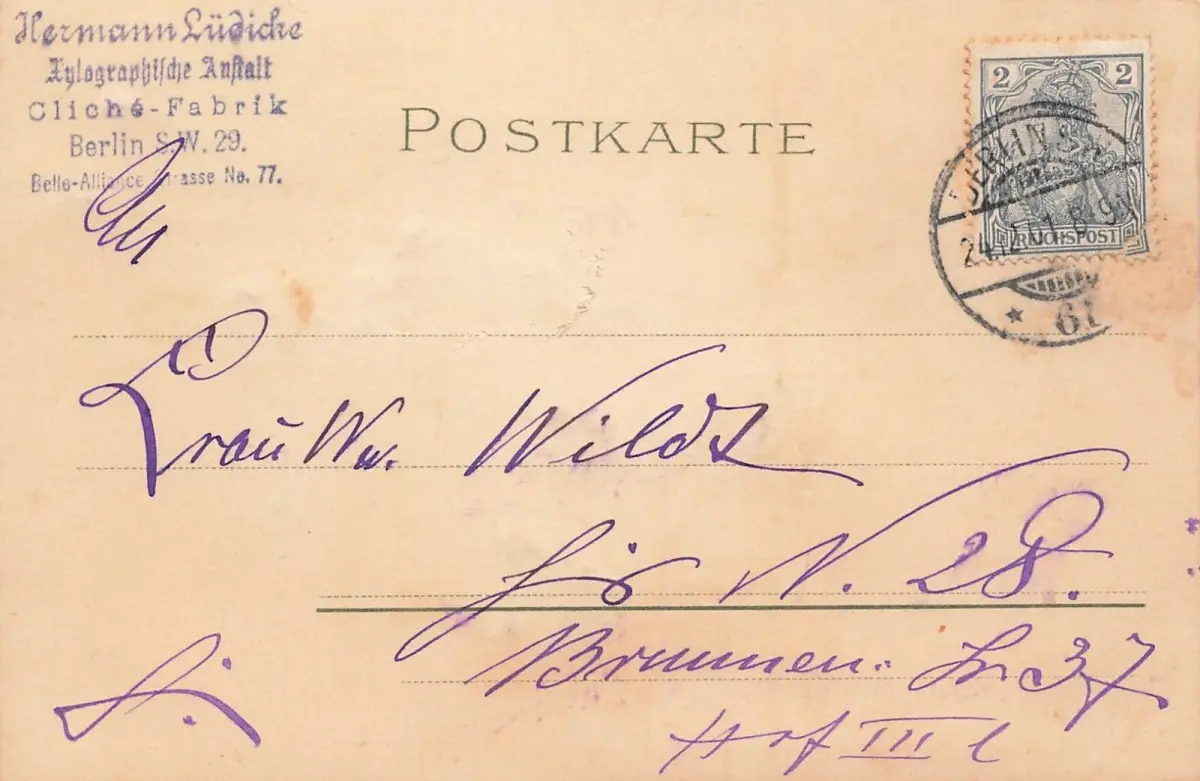 Hermann Lüdicke
Xylographische Anstalt
Cliché-Fabrik
Berlin S.W. 29.
Belle-Alliance Strasse No. 77.
POSTKARTE
2 2
BERLIN S.W.
REICHSPOST
61
An
Frau Ww. Wildt
hier N. 28.
Brunnen- Str 37
Hof III l